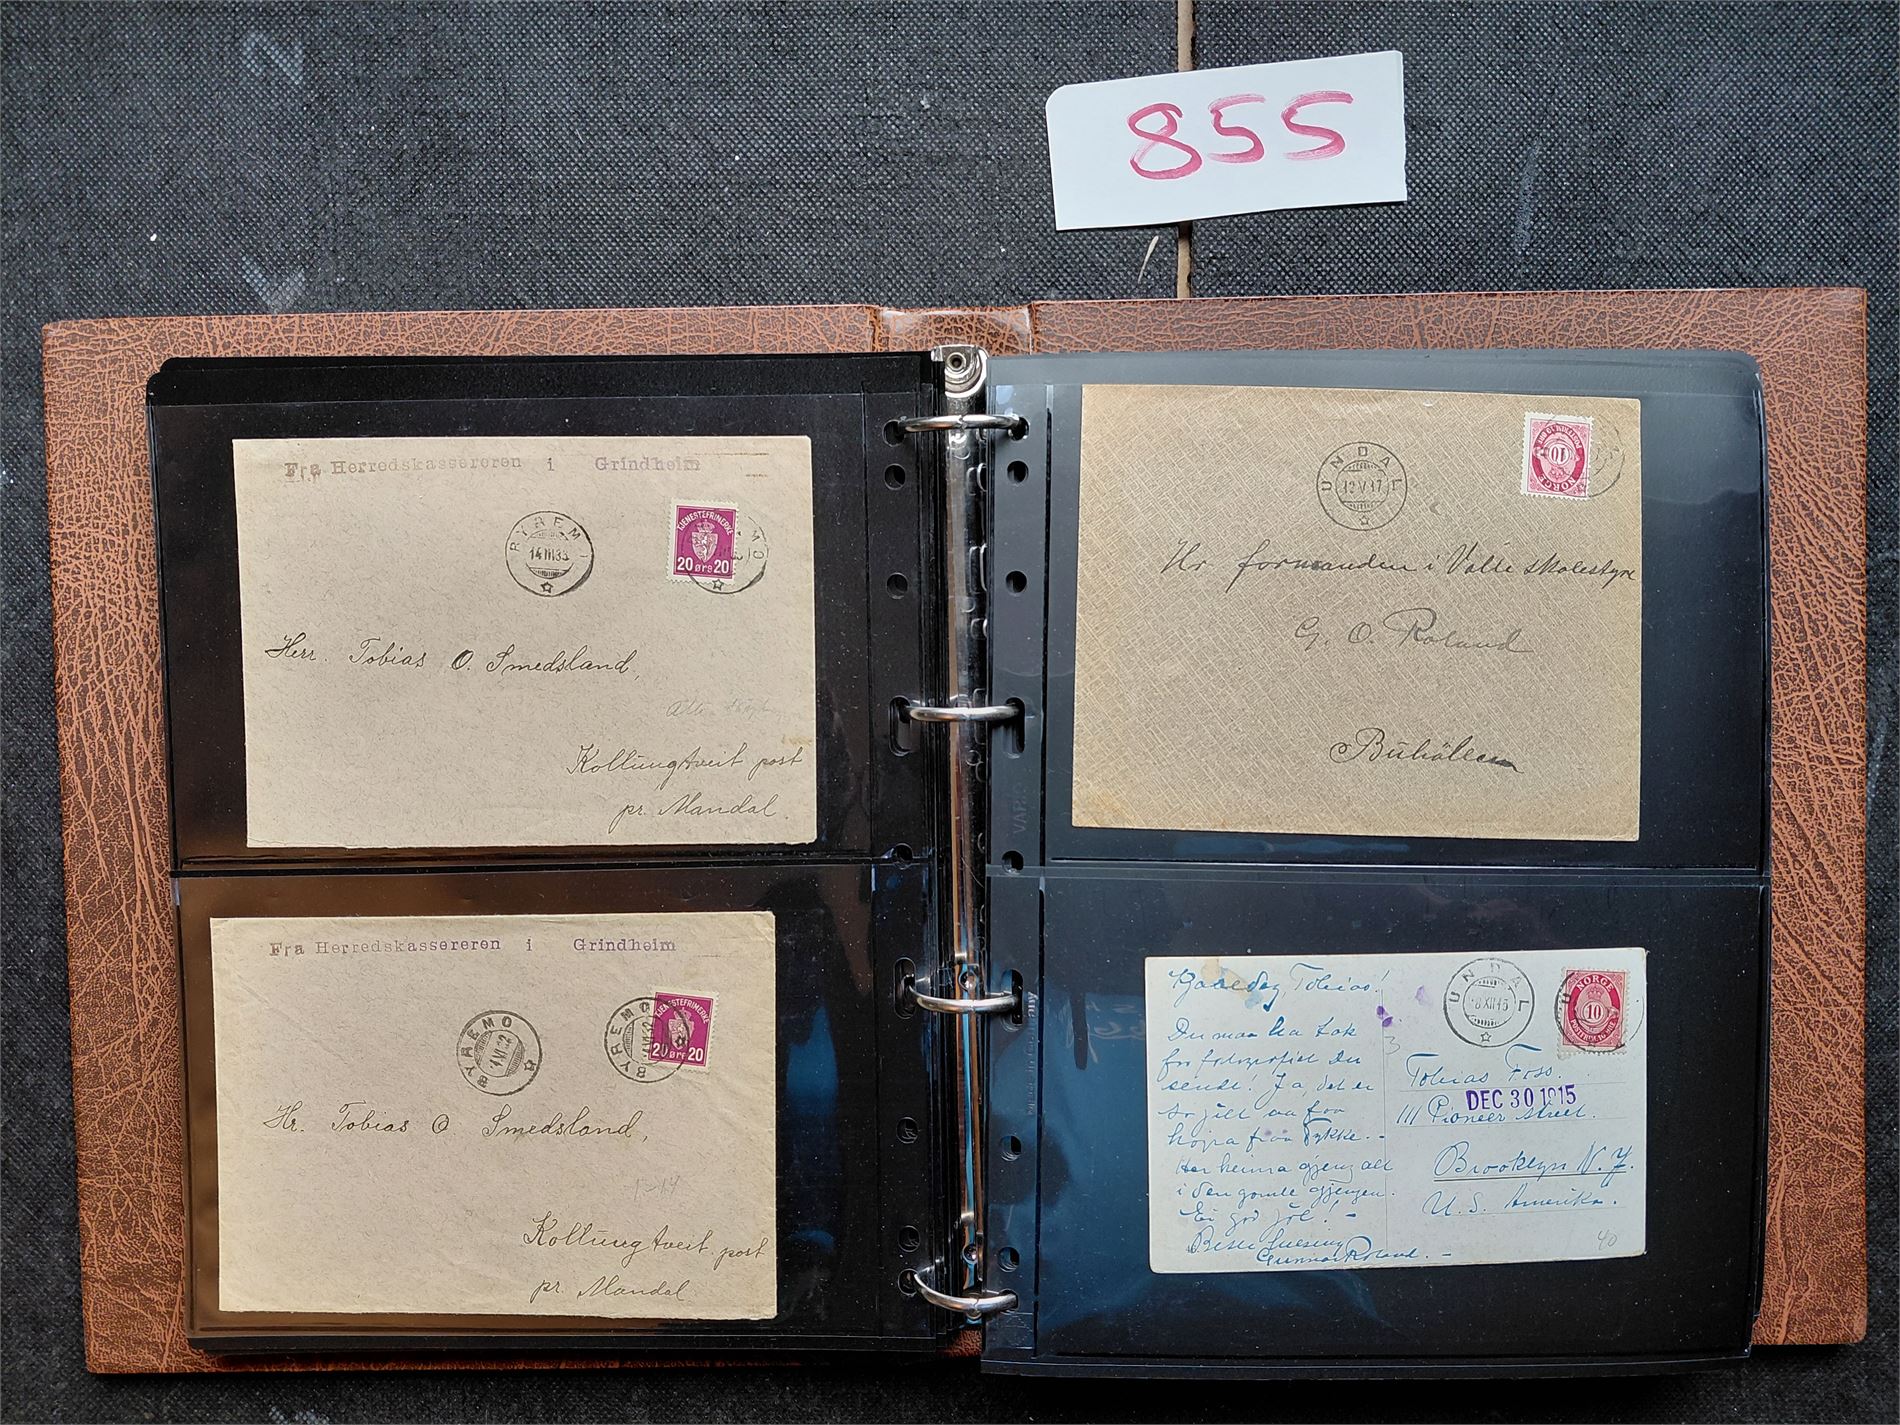 855
Fra Herredskassereren i Grindheim
BYREMO
14 III 33
TJENESTEFRIMERKE
20 øre 20
Herr. Tobias O. Smedsland,
Kollungtveit post
pr. Mandal.
Fra Herredskassereren i Grindheim
BYREMO
BYREMO
TJENESTEFRIMERKE
20 øre 20
Hr. Tobias O Smedsland,
Kollungtveit post
pr. Mandal
UNDAL
12 V 17
NORGE
10
Hr formanden i Valle skolestyre
G. O. Roland
VARIO
UNDAL
8 XII 15
NORGE
10
Tobias!
Du maa ha tak
for
du
sendt! Ja, det er
so gilt aa faa
høyra fraa dykke. -
Her heima gjeng alt
i den gamle gjengen.
Ei god jol! -
Beste helsing
Gunnar Roland. -
Tobias Foss.
DEC 30 1915
111 Pioneer street.
Brooklyn N. Y.
U. S. Amerika.
40